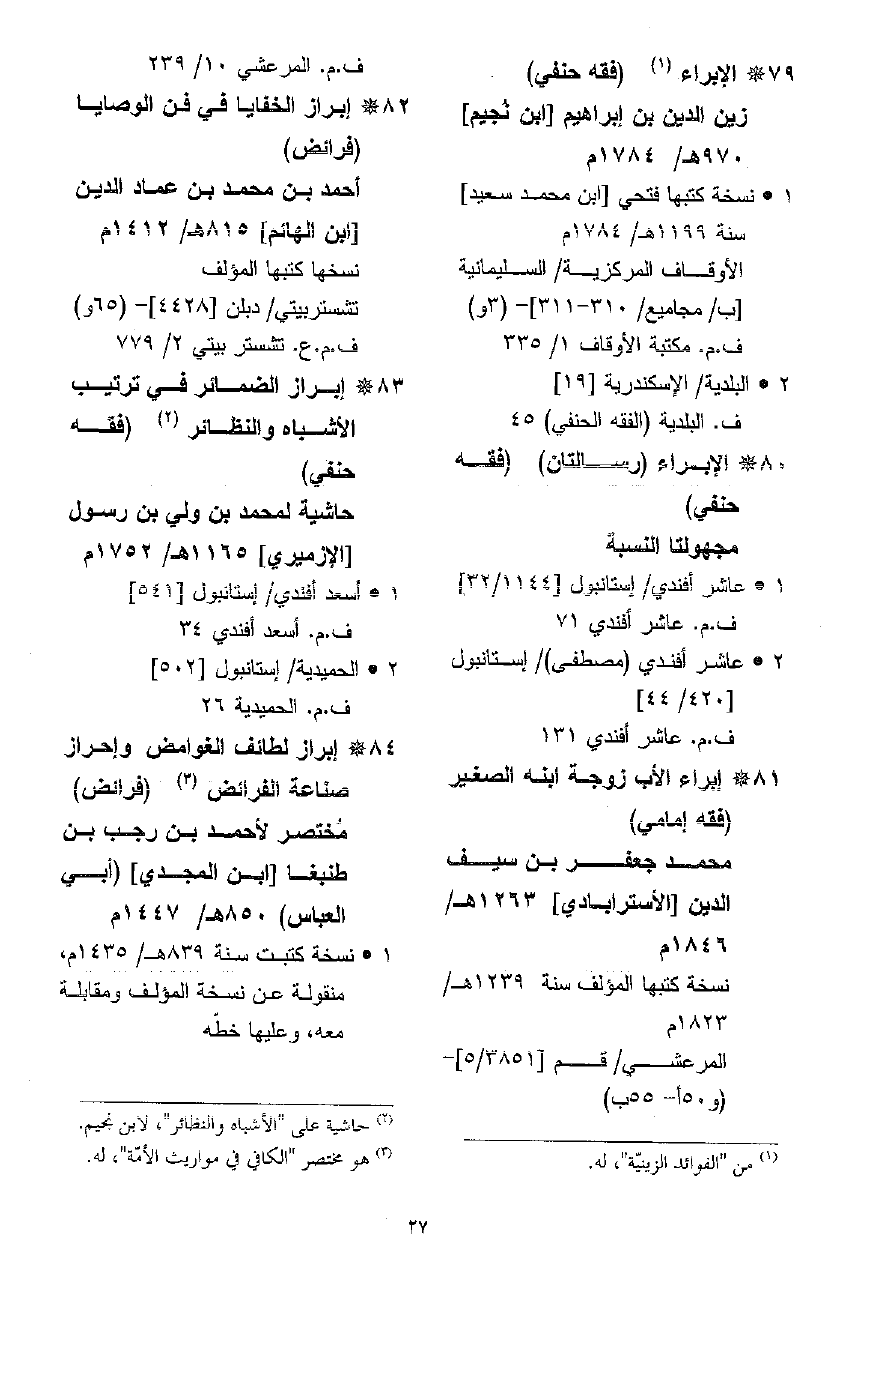 ٧٩ ❋ الإبراء (١) (فقه حنفي)
زين الدين بن إبراهيم [ابن نُجيم]
٩٧٠هـ/ ١٧٨٤م
١ • نسخة كتبها فتحي [ابن محمد سعيد]
سنة ١١٩٩هـ/ ١٧٨٤م
الأوقاف المركزية/ السليمانية
[ب/ مجاميع/ ٣١٠-٣١١]- (٣و)
ف.م. مكتبة الأوقاف ١/ ٣٣٥
٢ • البلدية/ الإسكندرية [١٩]
ف. البلدية (الفقه الحنفي) ٤٥
٨٠ ❋ الإبراء (رسالتان) (فقه
حنفي)
مجهولتا النسبة
١ • عاشر أفندي/ إستانبول [٣٢/١١٤٤]
ف.م. عاشر أفندي ٧١
٢ • عاشر أفندي (مصطفى)/ إستانبول
[٤٢٠/ ٤٤]
ف.م. عاشر أفندي ١٣١
٨١ ❋ إبراء الأب زوجة ابنه الصغير
(فقه إمامي)
محمد جعفر بن سيف
الدين [الأسترابادي] ١٢٦٣هـ/
١٨٤٦م
نسخة كتبها المؤلف سنة ١٢٣٩هـ/
١٨٢٣م
المرعشي/ قم [٥/٣٨٥١]-
(و٥٠أ- ٥٥ب)
(١) من "الفوائد الزينيّة"، له.
ف.م. المرعشي ١٠/ ٢٣٩
٨٢ ❋ إبراز الخفايا في فن الوصايا
(فرائض)
أحمد بن محمد بن عماد الدين
[ابن الهائم] ٨١٥هـ/ ١٤١٢م
نسخها كتبها المؤلف
تشستربيتي/ دبلن [٤٤٢٨]- (٦٥و)
ف.م.ع. تشستر بيتي ٢/ ٧٧٩
٨٣ ❋ إبراز الضمائر في ترتيب
الأشباه والنظائر (٢) (فقه
حنفي)
حاشية لمحمد بن ولي بن رسول
[الإزميري] ١١٦٥هـ/ ١٧٥٢م
١ • أسعد أفندي/ إستانبول [٥٤١]
ف.م. أسعد أفندي ٣٤
٢ • الحميدية/ إستانبول [٥٠٢]
ف.م. الحميدية ٢٦
٨٤ ❋ إبراز لطائف الغوامض وإحراز
صناعة الفرائض (٣) (فرائض)
مُختصر لأحمد بن رجب بن
طنبغا [ابن المجدي] (أبي
العباس) ٨٥٠هـ/ ١٤٤٧م
١ • نسخة كتبت سنة ٨٣٩هـ/ ١٤٣٥م،
منقولة عن نسخة المؤلف ومقابلة
معه، وعليها خطّه
(٢) حاشية على "الأشباه والنظائر"، لابن نجيم.
(٣) هو مختصر "الكافي في مواريث الأمّة"، له.
٢٧